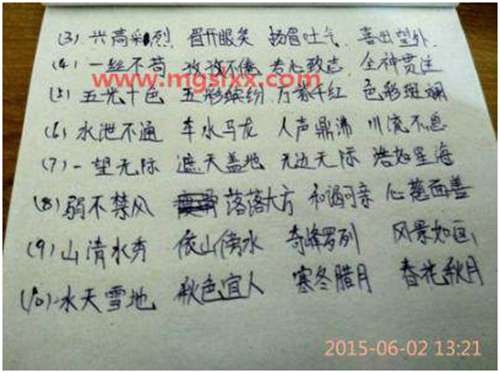 (3) 兴高彩烈 眉开眼笑 扬眉吐气 喜出望外
(4) 一丝不苟 孜孜不倦 专心致志 全神贯注
www.mgsixx.com
(5) 五光十色 五彩缤纷 万紫千红 色彩斑斓
(6) 水泄不通 车水马龙 人声鼎沸 川流不息
(7) 一望无际 遮天盖地 无边无际 浩如星海
(8) 弱不禁风 落落大方 和谒可亲 心慈面善
(9) 山清水秀 依山傍水 奇峰罗列 风景如画
(10) 水天雪地 秋色宜人 寒冬腊月 春花秋月
2015-06-02 13:21